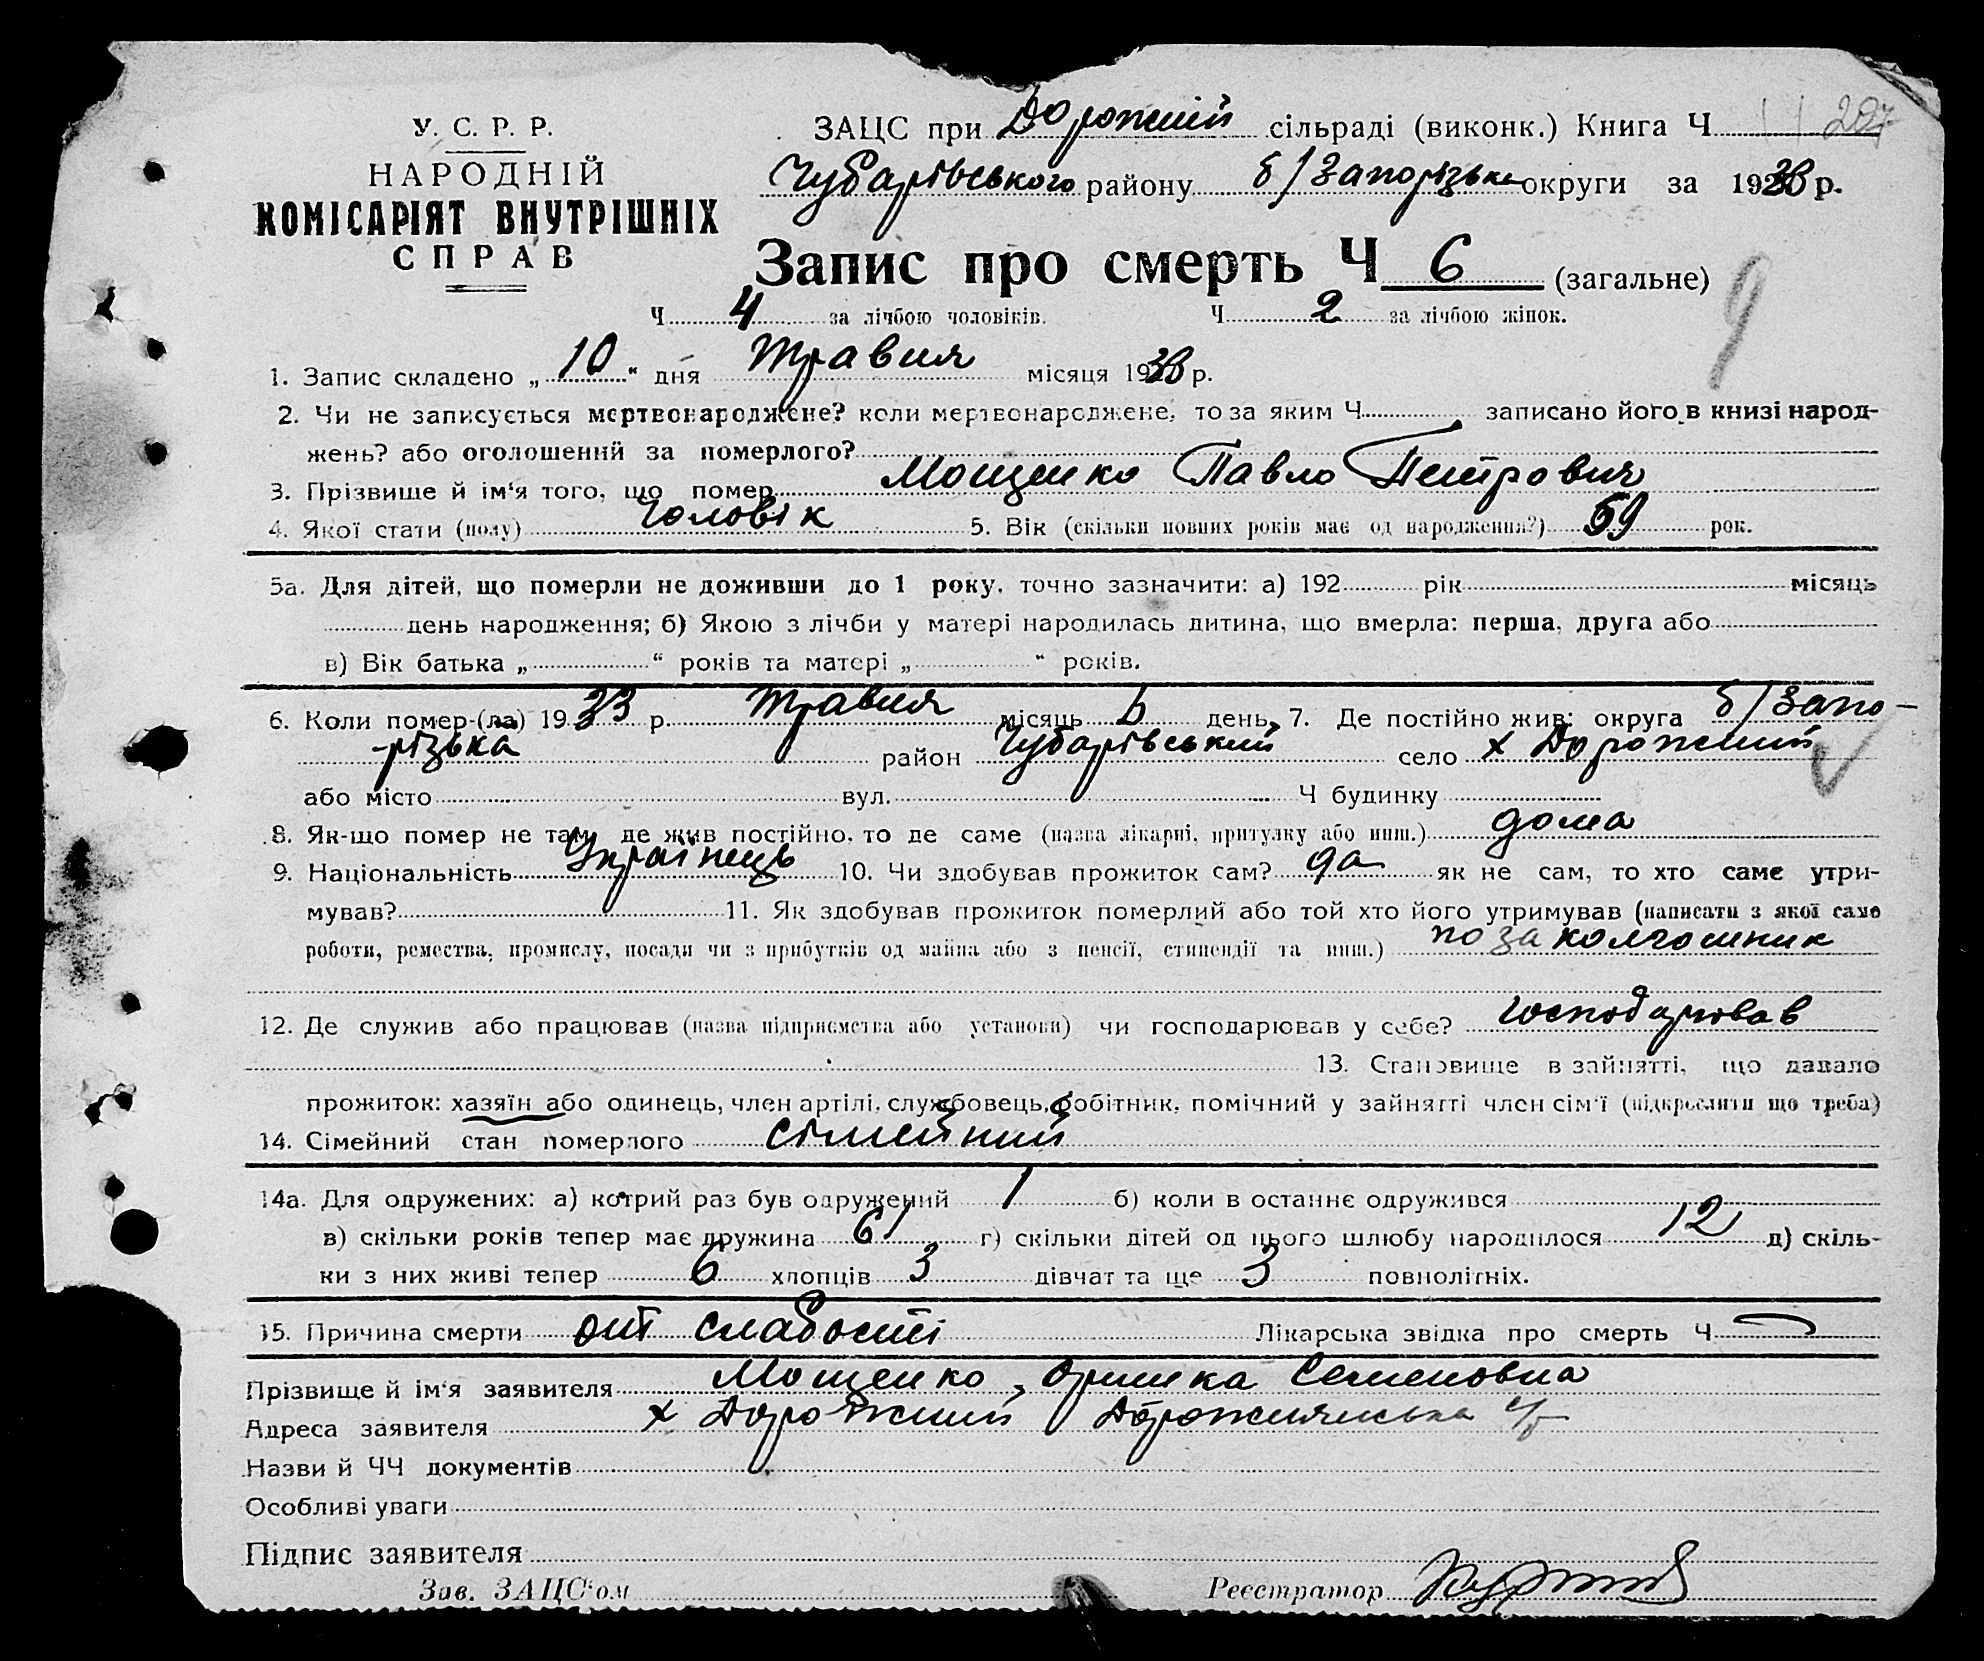 У. С. Р. Р.
НАРОДНІЙ
КОМІСАРІЯТ ВНУТРІШНІХ
СПРАВ
ЗАЦС при Дорожній сільраді (виконк.) Книга Ч. 207
Чубарівського району б/Запорізька округи за 1933 р.
Запис про смерть Ч 6 (загальне)
Ч 4 за лічбою чоловіків. Ч 2 за лічбою жінок.
9
1. Запис складено „ 10 " дня травня місяця 1933 р.
2. Чи не записується мертвонароджене? коли мертвонароджене, то за яким Ч записано його в книзі народ-
жень? або оголошений за померлого?
3. Прізвище й ім'я того, що помер Мощенко Павло Петрович
4. Якої стати (полу) чоловік 5. Вік (скільки повних років має од народження?) 59 рок.
5а. Для дітей, що померли не доживши до 1 року, точно зазначити: а) 192 рік місяць
день народження; б) Якою з лічби у матері народилась дитина, що вмерла: перша, друга або
в) Вік батька „ " років та матері „ " років.
6. Коли помер-(ла) 1933 р. травня місяць день 7. Де постійно жив: округа б/Запо-
різька район Чубарівський село х Дорожний
або місто вул. Ч будинку
8. Як-що помер не там, де жив постійно, то де саме (назва лікарні, притулку або инш.) дома
9. Національність Українець 10. Чи здобував прожиток сам? да як не сам, то хто саме утри-
мував? 11. Як здобував прожиток померлий або той хто його утримував (написати з якої саме
роботи, ремества, промислу, посади чи з прибутків од майна або з пенсії, стипендії та инш.) поза колгошник
12. Де служив або працював (назва підприємства або установи) чи господарював у себе? господарював
13. Становище в зайнятті, що давало
прожиток: хазяїн або одинець, член артілі, службовець, робітник, помічний у зайнятті член сім'ї (підкреслити що треба)
14. Сімейний стан померлого сімейний
14а. Для одружених: а) котрий раз був одружений 1 б) коли в останнє одружився
в) скільки років тепер має дружина 61 г) скільки дітей од цього шлюбу народилося 12 д) скіль-
ки з них живі тепер 6 хлопців 3 дівчат та ще 3 повнолітніх.
15. Причина смерти от слабості Лікарська звідка про смерть Ч
Прізвище й ім'я заявителя Мощенко Оришка Семеновна
Адреса заявителя х Дорожний Дорожнянська с/р
Назви й ЧЧ документів
Особливі уваги
Підпис заявителя
Зав. ЗАЦС'ом Реєстратор